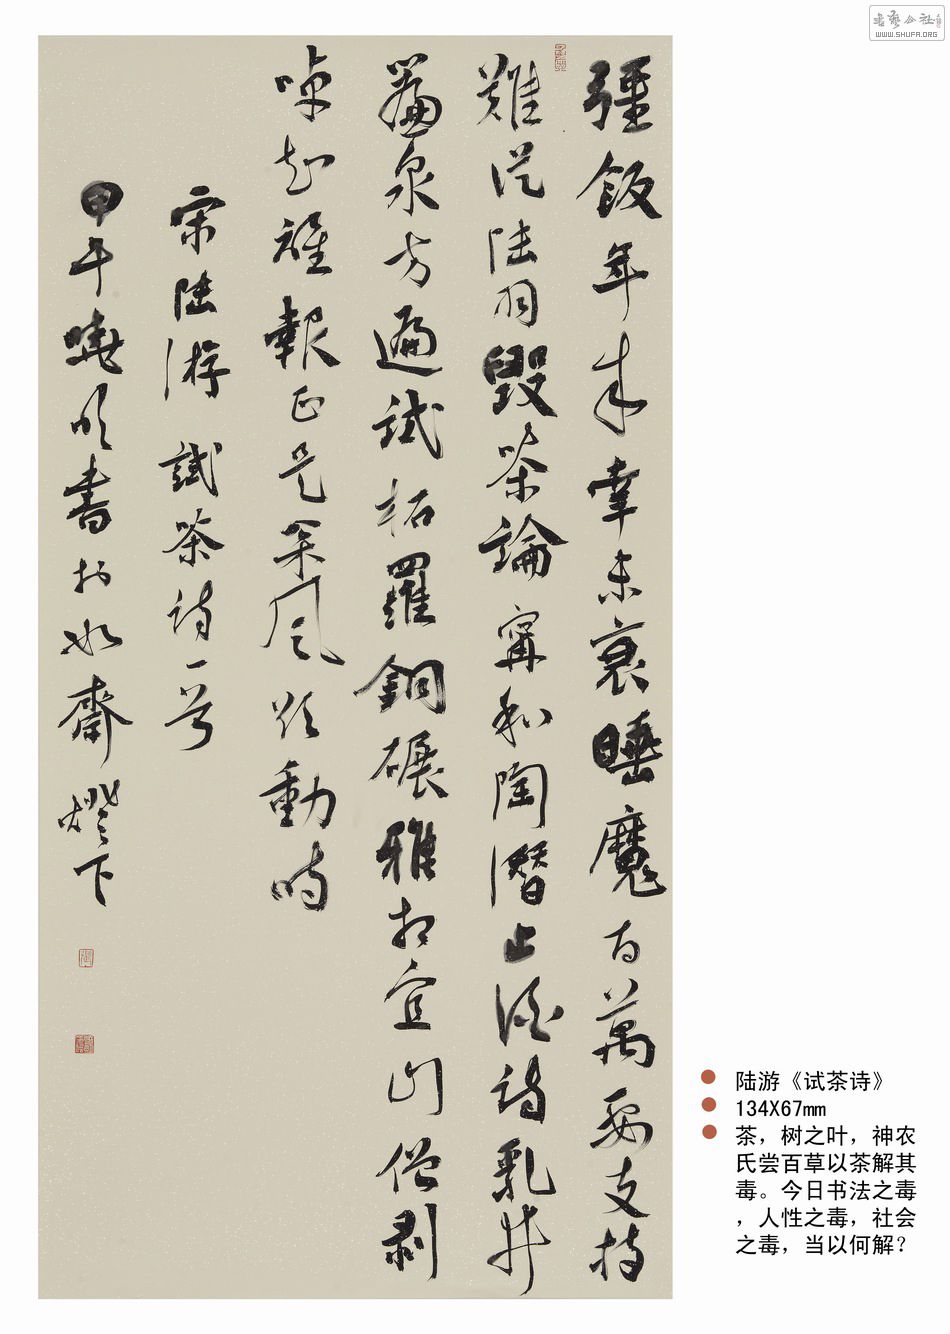 彊飯年來幸未衰睡魔百萬要支持
難從陸羽毀茶論寧和陶潛止酒詩乳井
簾泉方遍試柘羅銅碾雅相宜山僧剥
啅知誰報正是松風欲動時
宋陸游試茶詩一首
甲午曉書於齋燈下
书艺公社
WWW.SHUFA.ORG
陆游《试茶诗》
134X67mm
茶，树之叶，神农
氏尝百草以茶解其
毒。今日书法之毒
，人性之毒，社会
之毒，当以何解？